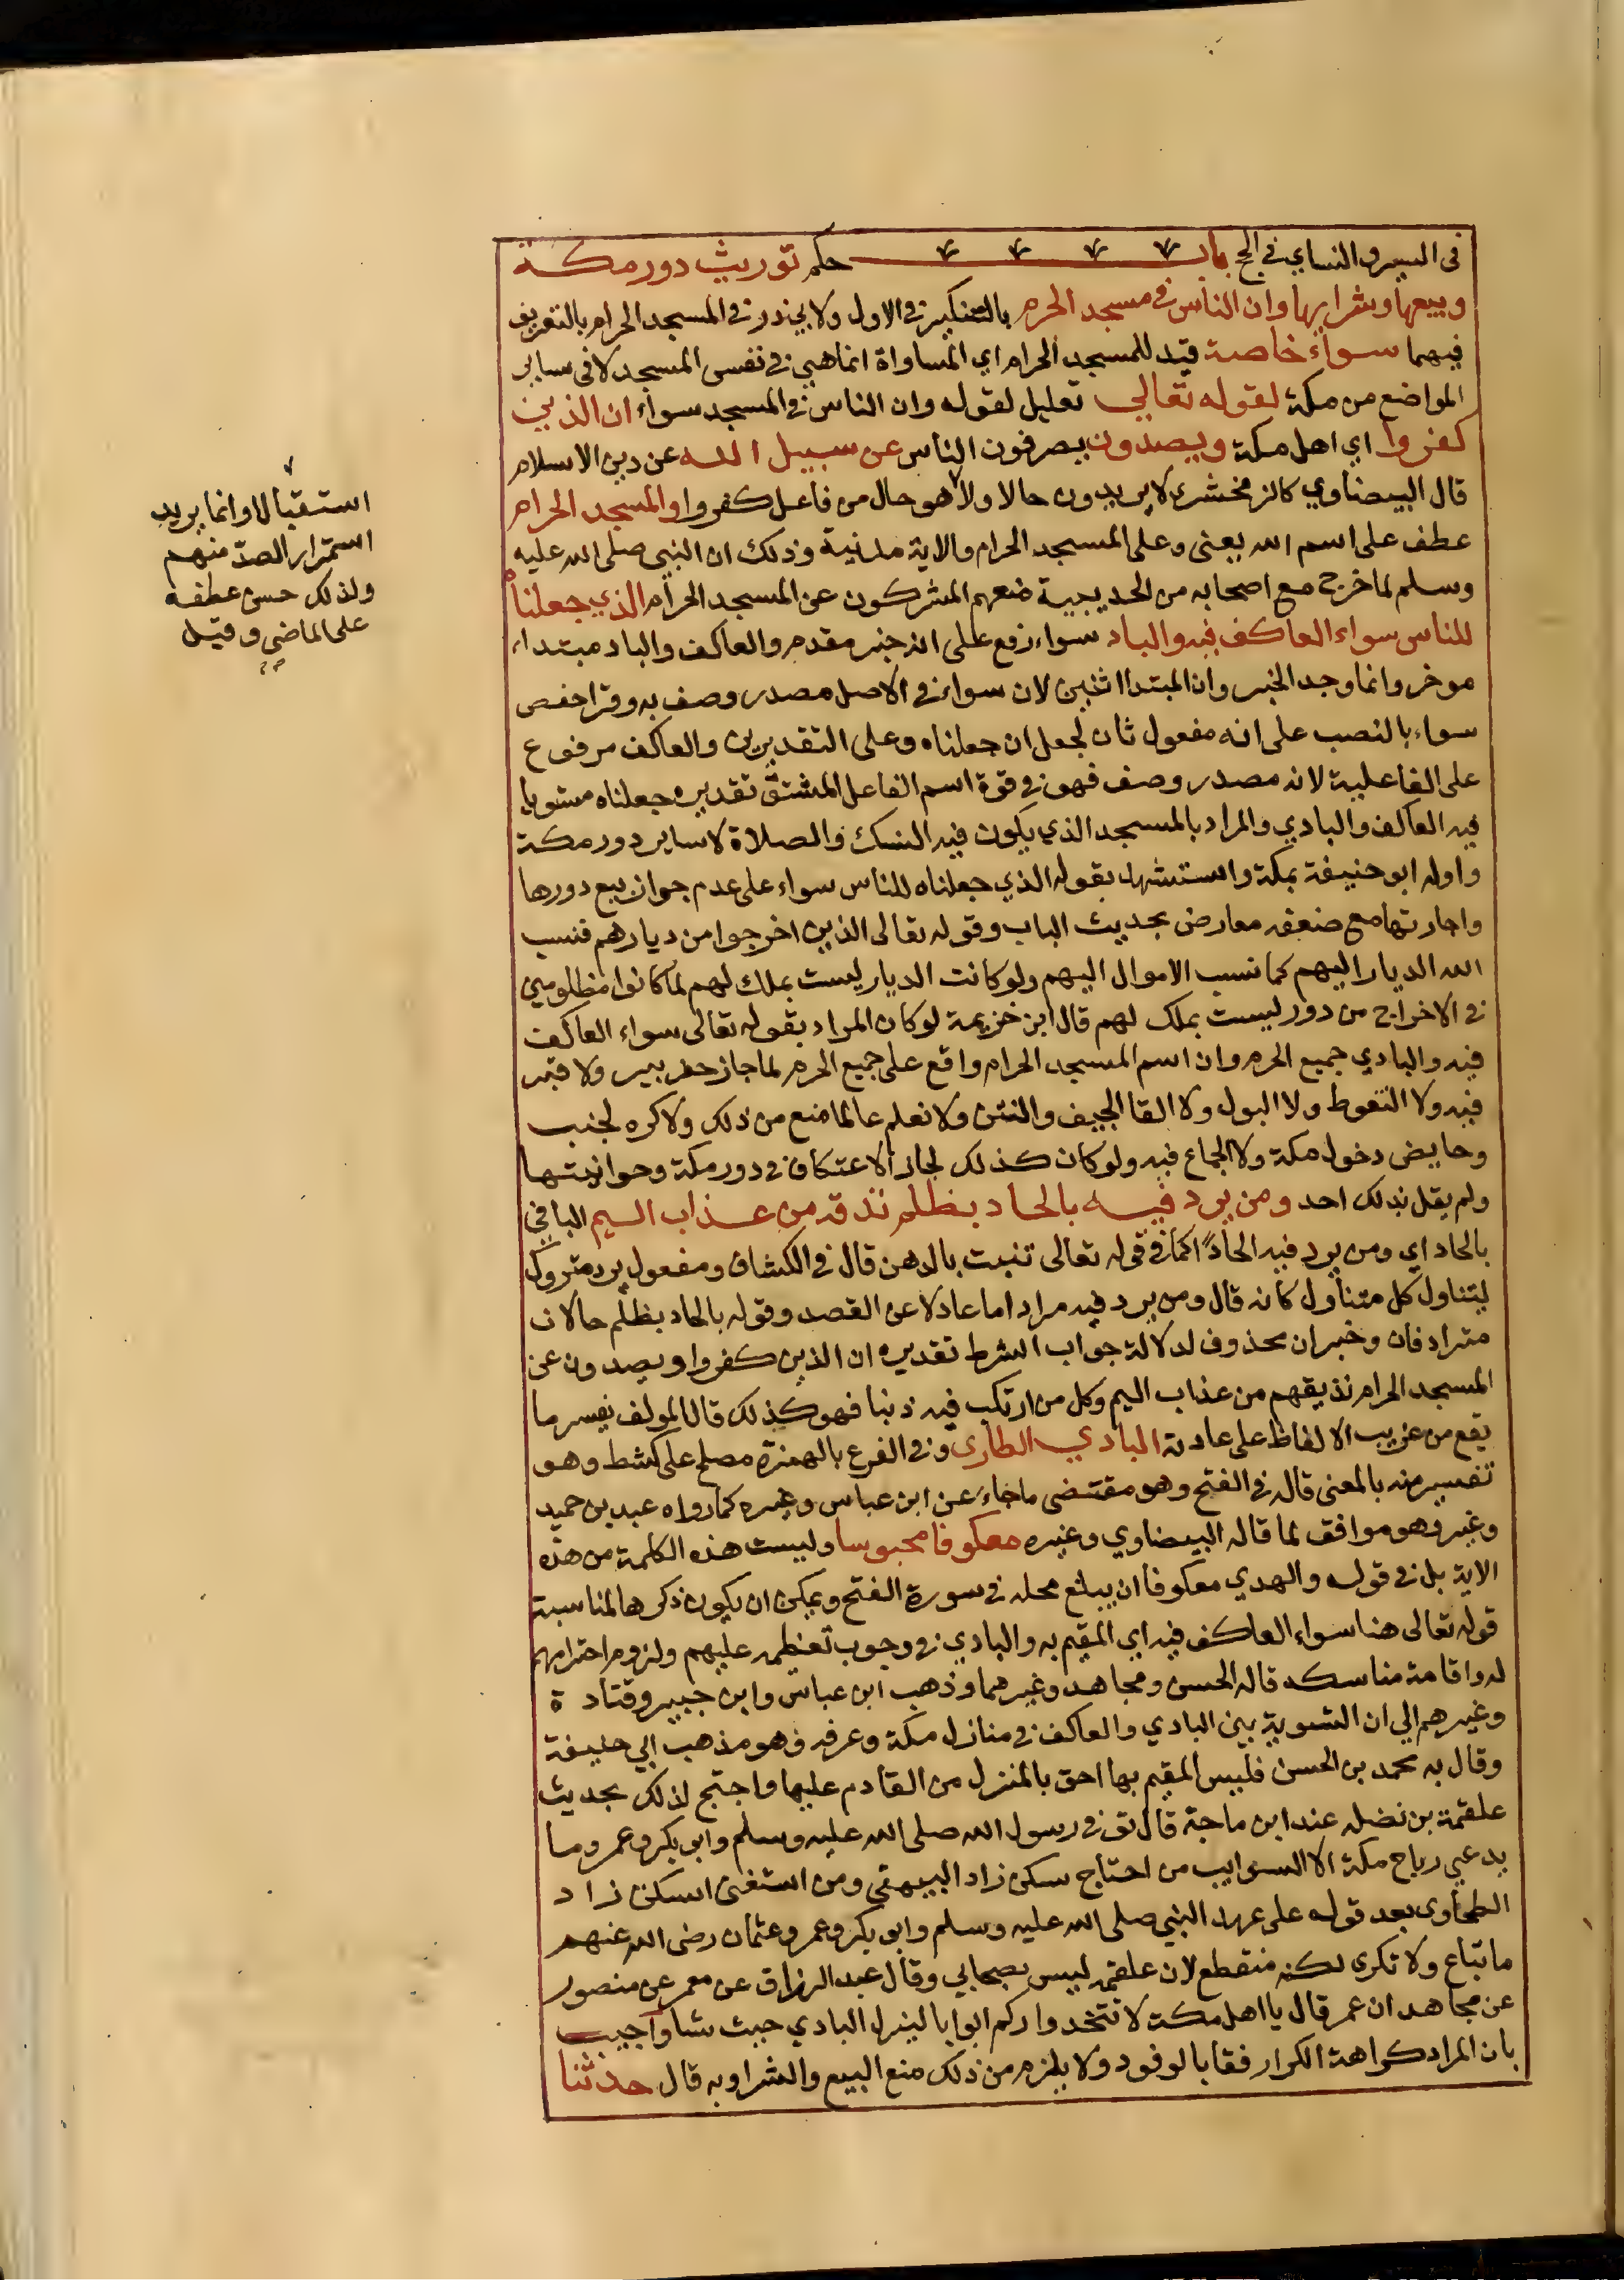 في السير والنساي في الحج باب حكم توريث دور مكة
وبيعها وشرايها وان الناس في مسجد الحرم بالتنكير في الاول ولابي ذر في المسجد الحرام بالتعريف
فيهما سواء خاصة قيد للمسجد الحرام اي المساواة انما هي في نفس المسجد لا في ساير
المواضع من مكة لقوله تعالى تعليل لقوله وان الناس في المسجد سواء ان الذين
كفروا اي اهل مكة ويصدون يصرفون الناس عن سبيل الله عن دين الاسلام
قال البيضاوي كالزمخشري لا يريدون حالا ولا هو حال من فاعل كفروا والمسجد الحرام
عطف على اسم الله يعني وعلى المسجد الحرام والاية مدنية وذلك ان النبي صلى الله عليه
وسلم لما خرج مع اصحابه من الحديبية منعهم المشركون عن المسجد الحرام الذي جعلناه
للناس سواء العاكف فيه والباد سواء رفع على انه خبر مقدم والعاكف والباد مبتداء
موخر وانما وحد الخبر وان المبتدا اثنين لان سواء في الاصل مصدر وصف به وقرا حفص
سواء بالنصب على انه مفعول ثان لجعل ان جعلناه وعلى التقديرين والعاكف مرفوع
على الفاعلية لانه مصدر وصف فهو في قوة اسم الفاعل المشتق تقديره جعلناه مستويا
فيه العاكف والبادي والمراد بالمسجد الذي يكون فيه النسك والصلاة لا ساير دور مكة
واوله ابو حنيفة بمكة واستشهد بقوله الذي جعلناه للناس سواء على عدم جواز بيع دورها
واجارتها مع ضعفه معارض بحديث الباب وقوله تعالى الذين اخرجوا من ديارهم فنسب
الله الديار اليهم كما نسب الاموال اليهم ولو كانت الديار ليست بملك لهم لما كانوا مظلومين
في الاخراج من دور ليست بملك لهم قال ابن خزيمة لو كان المراد بقوله تعالى سواء العاكف
فيه والبادي جميع الحرم وان اسم المسجد الحرام واقع على جميع الحرم لما جاز حفر بير ولا قبر
فيه ولا التغوط ولا البول ولا القا الجيف والنتن ولا نعلم عالما منع من ذلك ولا كره لجنب
وحايض دخول مكة ولا الجماع فيه ولو كان كذلك لجاز الاعتكاف في دور مكة وحوانيتها
ولم يقل بذلك احد ومن يرد فيه بالحاد بظلم نذقه من عذاب اليم البا في
بالحاد اي ومن يرد فيه الحادًا كما في قوله تعالى تنبت بالدهن قال في الكشاف ومفعول يرد متروك
ليتناول كل متناول كانه قال ومن يرد فيه مراد اما عادلا عن القصد وقوله بالحاد بظلم حالان
مترادفان وخبر ان محذوف لدلالة جواب الشرط تقديره ان الذين كفروا ويصدون عن
المسجد الحرام نذيقهم من عذاب اليم وكل من ارتكب فيه ذنبا فهو كذلك قال المولف يفسر ما
يقع من غريب الالفاظ على عادته البادي الطاري وفي الفرع بالهمزة مصلح على كشط وهو
تفسير منه بالمعنى قاله في الفتح وهو مقتضى ما جاء عن ابن عباس وغيره كما رواه عبد بن حميد
وغيره وهو موافق لما قاله البيضاوي وغيره معكوفا محبوسا وليست هذه الكلمة من هذه
الاية بل في قوله والهدي معكوفا ان يبلغ محله في سورة الفتح ويمكن ان يكون ذكرها لمناسبة
قوله تعالى هنا سواء العاكف فيه اي المقيم به والبادي في وجوب تعظيمه عليهم ولزوم احترامهم
له واقامة مناسكه قاله الحسن ومجاهد وغيرهما وذهب ابن عباس وابن جبير وقتادة
وغيرهم الى ان التسوية بين البادي والعاكف في منازل مكة وعرفه وهو مذهب ابي حنيفة
وقال به محمد بن الحسن فليس المقيم بها احق بالمنزل من القادم عليها واحتج لذلك بحديث
علقمة بن نضله عند ابن ماجة قال توفي رسول الله صلى الله عليه وسلم وابو بكر وعمر وما
يدعي رباع مكة الا السوايب من احتاج سكن زاد البيهقي ومن استغنى اسكن زاد
الطحاوي بعد قوله على عهد النبي صلى الله عليه وسلم وابو بكر وعمر وعثمان رضى الله عنهم
ما تباع ولا تكرى لكنه منقطع لان علقمه ليس بصحابي وقال عبد الرزاق عن معمر عن منصور
عن مجاهد ان عمر قال يا اهل مكة لا تتخذوا دوركم ابوابا لينزل البادي حيث شا واجيب
بان المراد كراهة الكرا رفقا بالوفود ولا يلزم من ذلك منع البيع والشرا وبه قال حدثنا
استقبالا وانما يريد
استمرار الصد منهم
ولذلك حسن عطفه
على الماضي وقيل